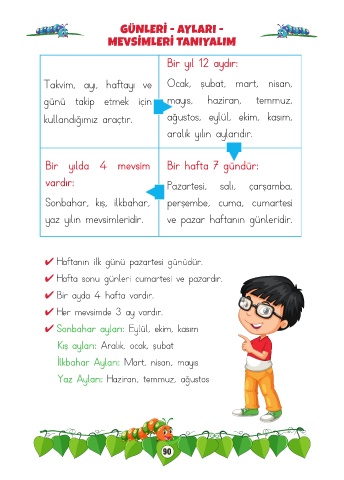 GÜNLERİ - AYLARI -
MEVSİMLERİ TANIYALIM
Takvim, ayı, haftayı ve
günü takip etmek için
kullandığımız araçtır.
Bir yıl 12 aydır:
Ocak, şubat, mart, nisan,
mayıs, haziran, temmuz,
ağustos, eylül, ekim, kasım,
aralık yılın aylarıdır.
Bir yılda 4 mevsim
vardır:
Sonbahar, kış, ilkbahar,
yaz yılın mevsimleridir.
Bir hafta 7 gündür:
Pazartesi, salı, çarşamba,
perşembe, cuma, cumartesi
ve pazar haftanın günleridir.
✔ Haftanın ilk günü pazartesi günüdür.
✔ Hafta sonu günleri cumartesi ve pazardır.
✔ Bir ayda 4 hafta vardır.
✔ Her mevsimde 3 ay vardır.
✔ Sonbahar ayları: Eylül, ekim, kasım
Kış ayları: Aralık, ocak, şubat
İlkbahar Ayları: Mart, nisan, mayıs
Yaz Ayları: Haziran, temmuz, ağustos
90